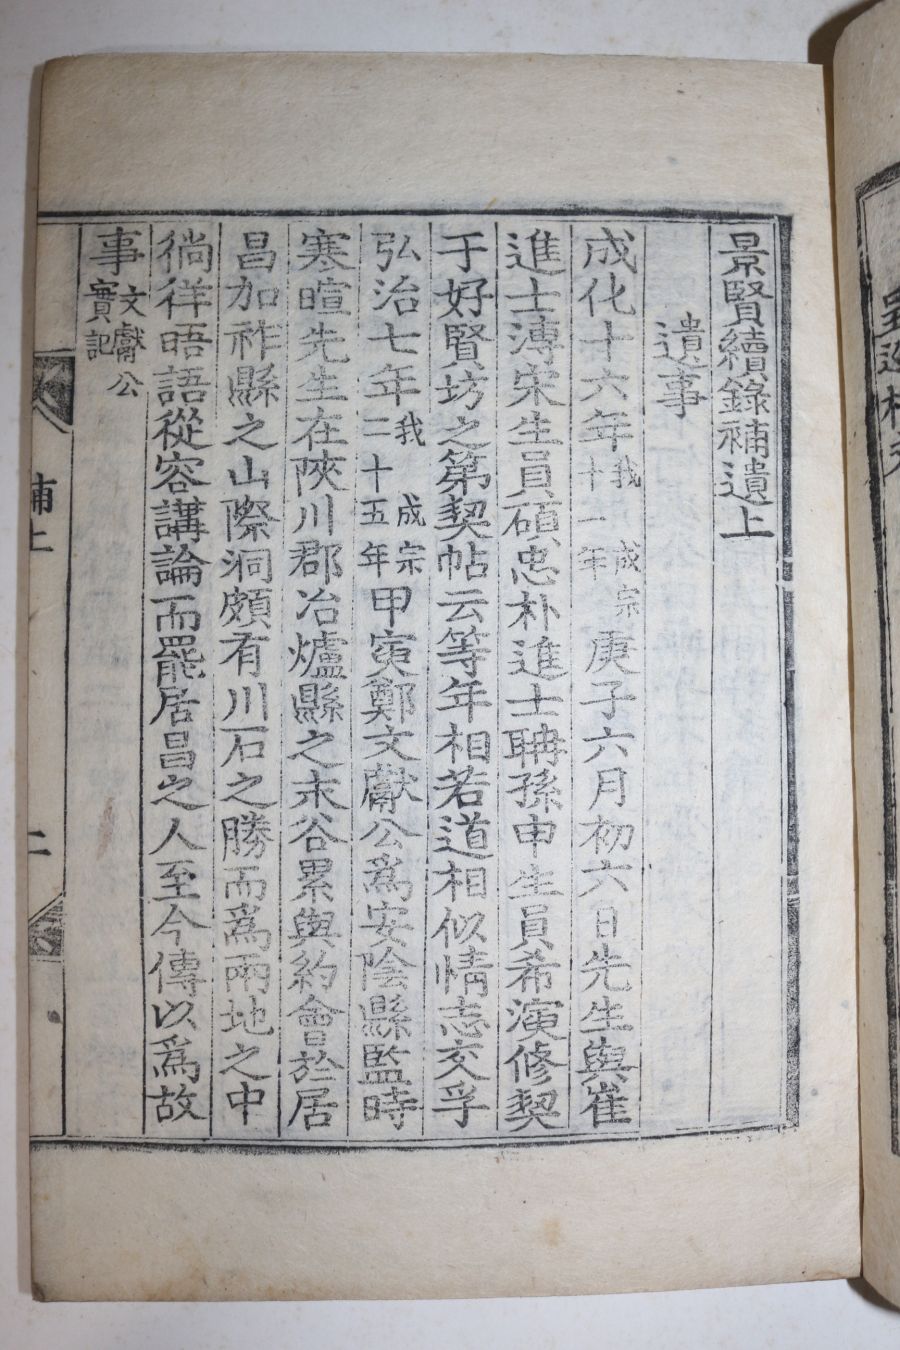 景賢續錄補遺上
遺事
成化十六年我成宗十一年庚子六月初六日先生與崔
進士溥宋生員碩忠朴進士聃孫申生員希演修契
于好賢坊之第契帖云等年相若道相似情志交孚
弘治七年我成宗二十五年甲寅鄭文獻公爲安陰縣監時
寒暄先生在陜川郡冶爐縣之末谷累與約會於居
昌加祚縣之山際洞頗有川石之勝而爲兩地之中
徜徉晤語從容講論而罷居昌之人至今傳以爲故
事文獻公實記
補上
一